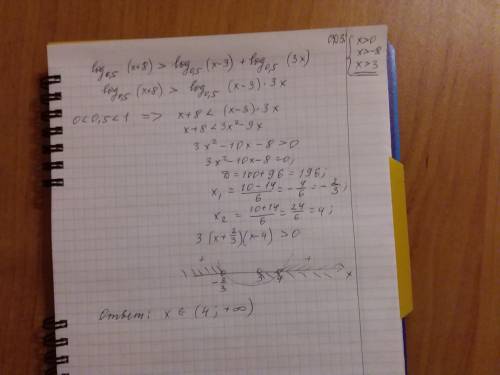 log₀,₅ (x+8) > log₀,₅ (x-3) + log₀,₅ (3x)
ОДЗ: { x>0
x>-8
x>3
log₀,₅ (x+8) > log₀,₅ (x-3)·3x
0<0,5<1 => x+8 < (x-3)·3x
x+8 < 3x²-9x
3x²-10x-8>0
3x²-10x-8=0;
D=100+96=196;
x₁ = (10-14)/6 = -4/6 = -2/3;
x₂ = (10+14)/6 = 24/6 = 4;
3(x+2/3)(x-4) >0
+ - +
-2/3 3 4 x
Ответ: x ∈ (4; +∞)